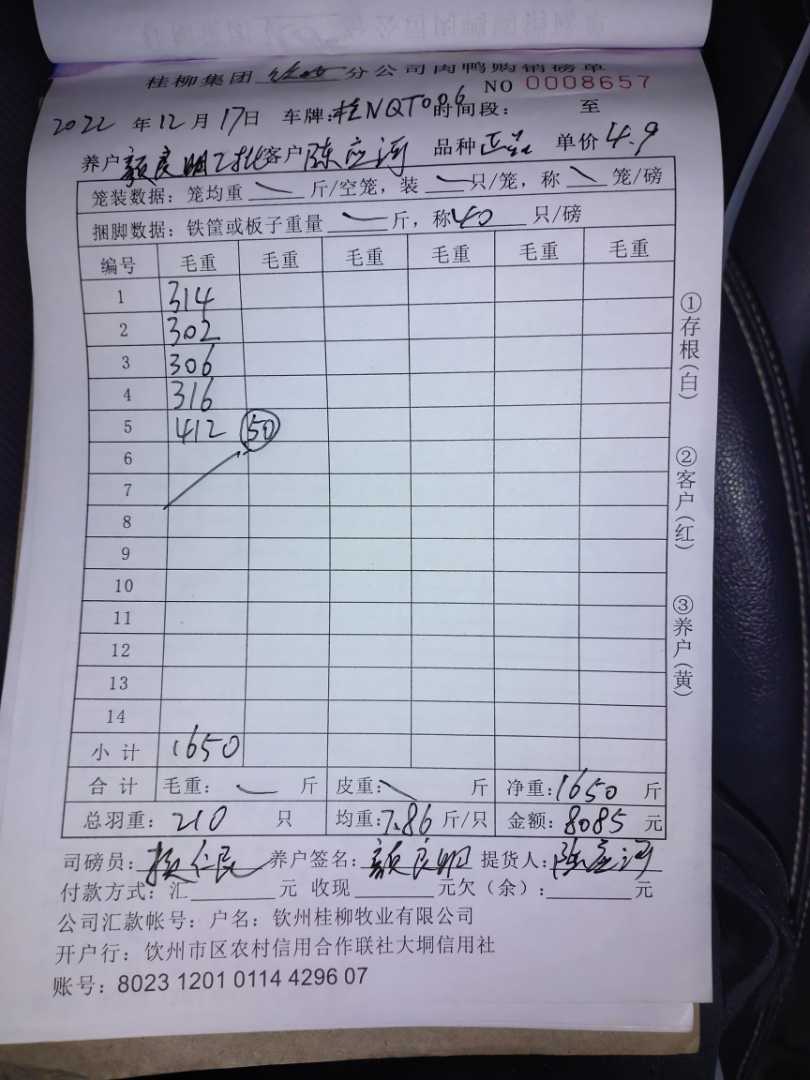 桂柳集团 分公司肉鸭购销磅单
NO 0008657
2022 年 12 月 17 日 车牌:桂NQT086 时间段: 至
养户 颜良明乙批 客户 陈应河 品种 单价 4.9
笼装数据: 笼均重 斤/空笼, 装 只/笼, 称 笼/磅
捆脚数据: 铁筐或板子重量 斤, 称 40 只/磅
编号 毛重 毛重 毛重 毛重 毛重 毛重
1 314
2 302
3 306
4 316
5 412 50
6
7
8
9
10
11
12
13
14
小计 1650
合计 毛重: 斤 皮重: 斤 净重: 1650 斤
总羽重: 210 只 均重: 7.86 斤/只 金额: 8085 元
司磅员: 养户签名: 颜良明 提货人: 陈应河
付款方式: 汇 元 收现 元欠(余): 元
公司汇款帐号: 户名: 钦州桂柳牧业有限公司
开户行: 钦州市区农村信用合作联社大垌信用社
账号: 8023 1201 0114 4296 07
①存根(白)
②客户(红)
③养户(黄)